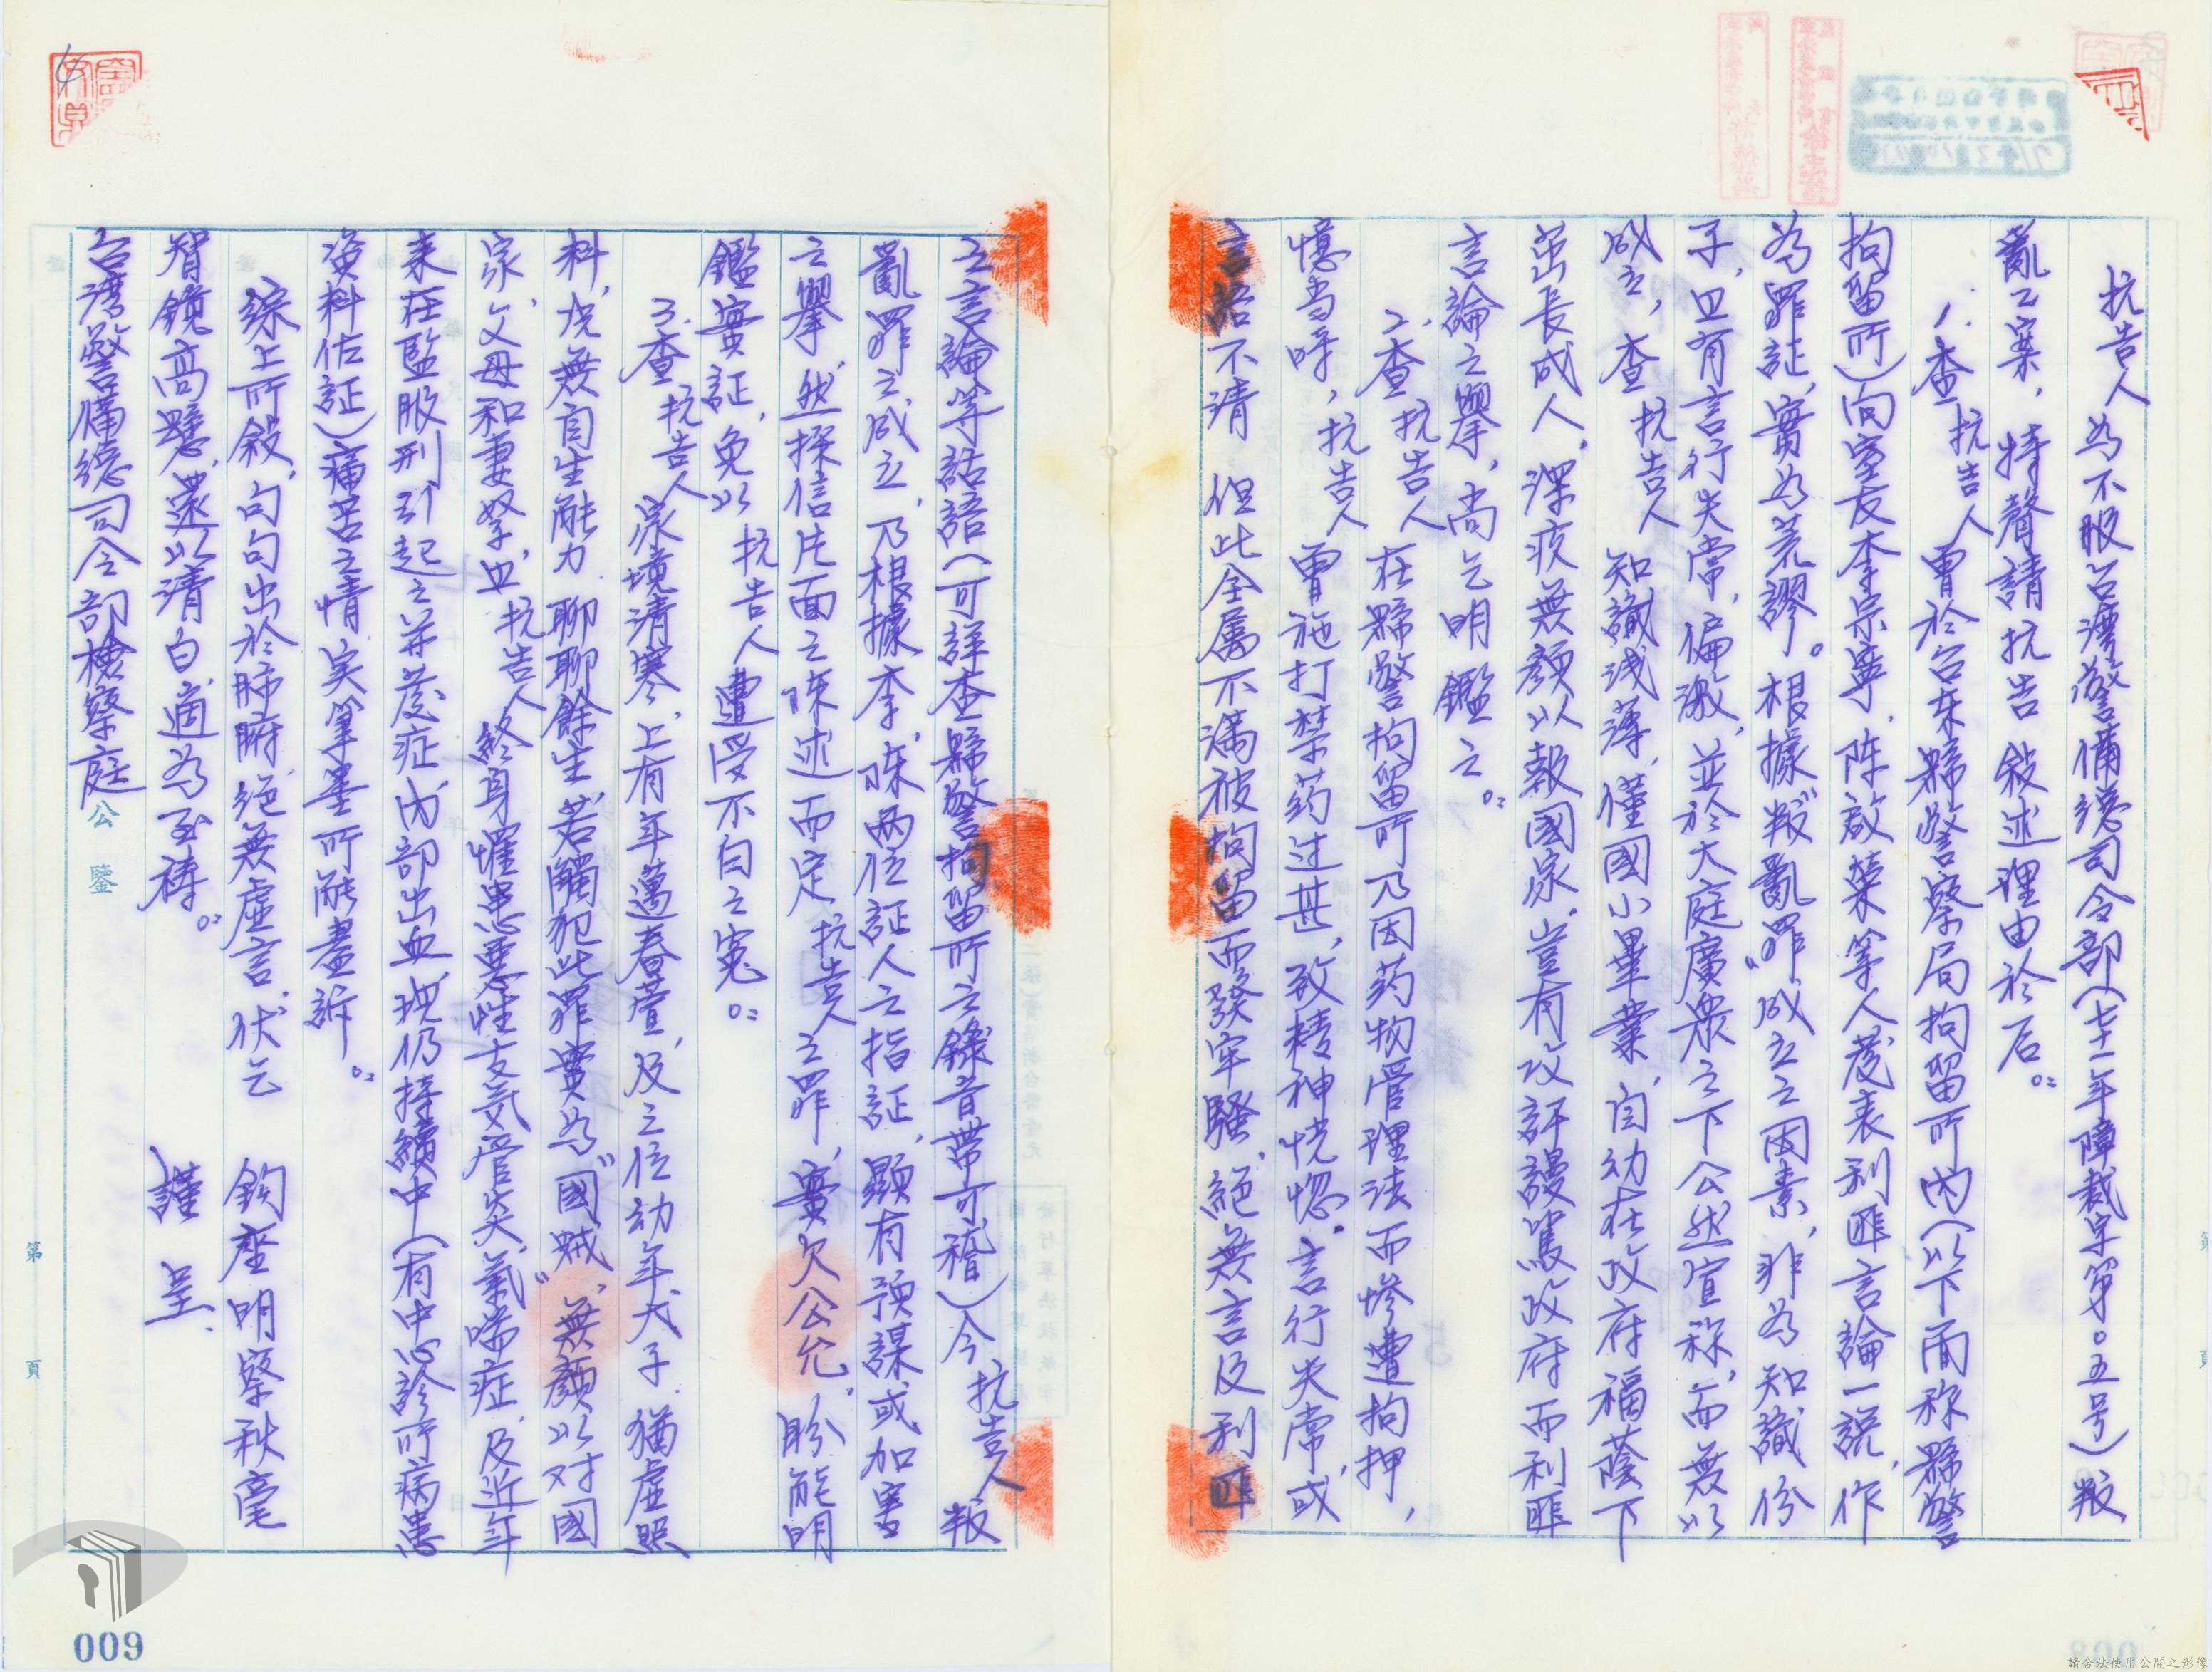 抗告人為不服台灣警備總司令部(七十一年障裁字第〇五号)叛
亂乙案，特聲請抗告敍述理由於后。
1.查抗告人曾於台東縣警察局拘留所內(以下而称縣警
拘留所)向室友李宗寧.陈啟葉等人發表利匪言論一說,作
為罪証,實為荒謬。根據"叛亂罪"成立之因素,非為知識份
子,且有言行失常,偏激,並於大庭廣眾之下公然宣称,而無以
成立,查抗告人知識浅薄,僅國小畢業,自幼在政府福蔭下
茁長成人,深疚無顏以報國家,豈有攻訐謾罵政府而利匪
言論之舉,尚乞明鑑之。
2.查抗告人在縣警拘留所乃因药物管理法而慘遭拘押,
憶当時,抗告人曾施打禁药过甚,致精神恍惚。言行失常,或
言語不清 但此全属不满被拘留而發牢騷,絕無言及利匪
之言論等話語(可詳查縣警拘留所之錄音帶可稽)今抗告人叛
亂罪之成立,乃根據李,陳两位証人之指証,顯有預謀或加害
之舉,然採信片面之陳述而定抗告人之罪,實欠公允,盼能明
鑑實証,免以抗告人遭受不白之寃。
3.查抗告人家境清寒,上有年邁春萱,及三位幼年犬子.猶虛照
料,尤無自生能力.聊聊餘生,若觸犯此罪實為"國賊",無顏以对國
家,父母和妻孥,且抗告人終身懼患惡性支気管炎,氣喘症,及近年
来在監服刑引起之并發症,內部出血,現仍持續中(有中心診所病患
資料佐証)痛苦之情,実筆墨所能盡訴。
綜上所敍,句句出於肺腑,絕無虛言,伏乞 鈞座明察秋毫
智鏡高懸,還以清白,適為至禱。 謹呈.
台灣警備總司令部檢察庭 公鑒
第 頁
009
請合法使用公開之影像